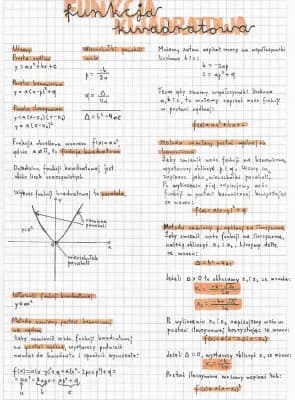 funkcja
kwadratowa
Wzory
Postać ogólna
y = ax² + bx + c
Postać kanoniczna
y = a(x-p)² + q
Postać iloczynowa
y = a(x-x₁)(x-x₂)
y = a(x-x₀)²
współrzędne paraboli
p = -b/2a
q = -Δ/4a
Δ = b² - 4ac
Funkcja określona wzorem f(x) = ax²,
gdzie a ≠ 0, to funkcja kwadratowa
Dziedziną funkcji kwadratowej jest
zbiór liczb rzeczywistych
Wykres funkcji kwadratowej to parabola
y=x²
ramiona
paraboli
wierzchołek
paraboli
funkcji kwadratowej
y = ax²
Metoda zamiany postaci kanonicznej
na ogólną
Żeby zamienić wzór funkcji kwadratowej
na postać ogólną, wystarczy podnieść
nawias do kwadratu i opuścić wyrażenie:
a b c
Możemy zatem zapisać wzory na współczynniki
b = -2ap
c = ap² + q
Teraz gdy znamy współczynniki liczbowe
a, b i c, to możemy zapisać wzór funkcji
w postaci ogólnej:
f(x) = ax² + bx + c
Metoda zamiany postaci ogólnej na
kanoniczną
Żeby zamienić wzór funkcji na kanoniczną,
wystarczy obliczyć p i q. Wzory są
Po wyliczeniu p i q
w postaci kanonicznej, korzystając
ze wzoru:
f(x) = a(x-p)² + q
Metoda zamiany p. ogólnej na iloczynową
Żeby zamienić wzór funkcji na iloczynową,
należy obliczyć x₁ i x₂, licząc deltę
ze wzoru:
Δ = b² - 4ac
Jeżeli Δ > 0 to obliczamy x₁ i x₂ ze wzorów:
x₁ = -b-√Δ/2a
x₂ = -b+√Δ/2a
Po wyliczeniu x₁ i x₂ zapisujemy wzór w
postaci iloczynowej korzystając ze wzoru:
f(x) = a(x-x₁)(x-x₂)
Jeżeli Δ = 0, wystarczy obliczyć x₀ ze wzoru:
x₀ = -b/2a
Postać iloczynową możemy zapisać tak:
f(x) = a(x-x₀)²